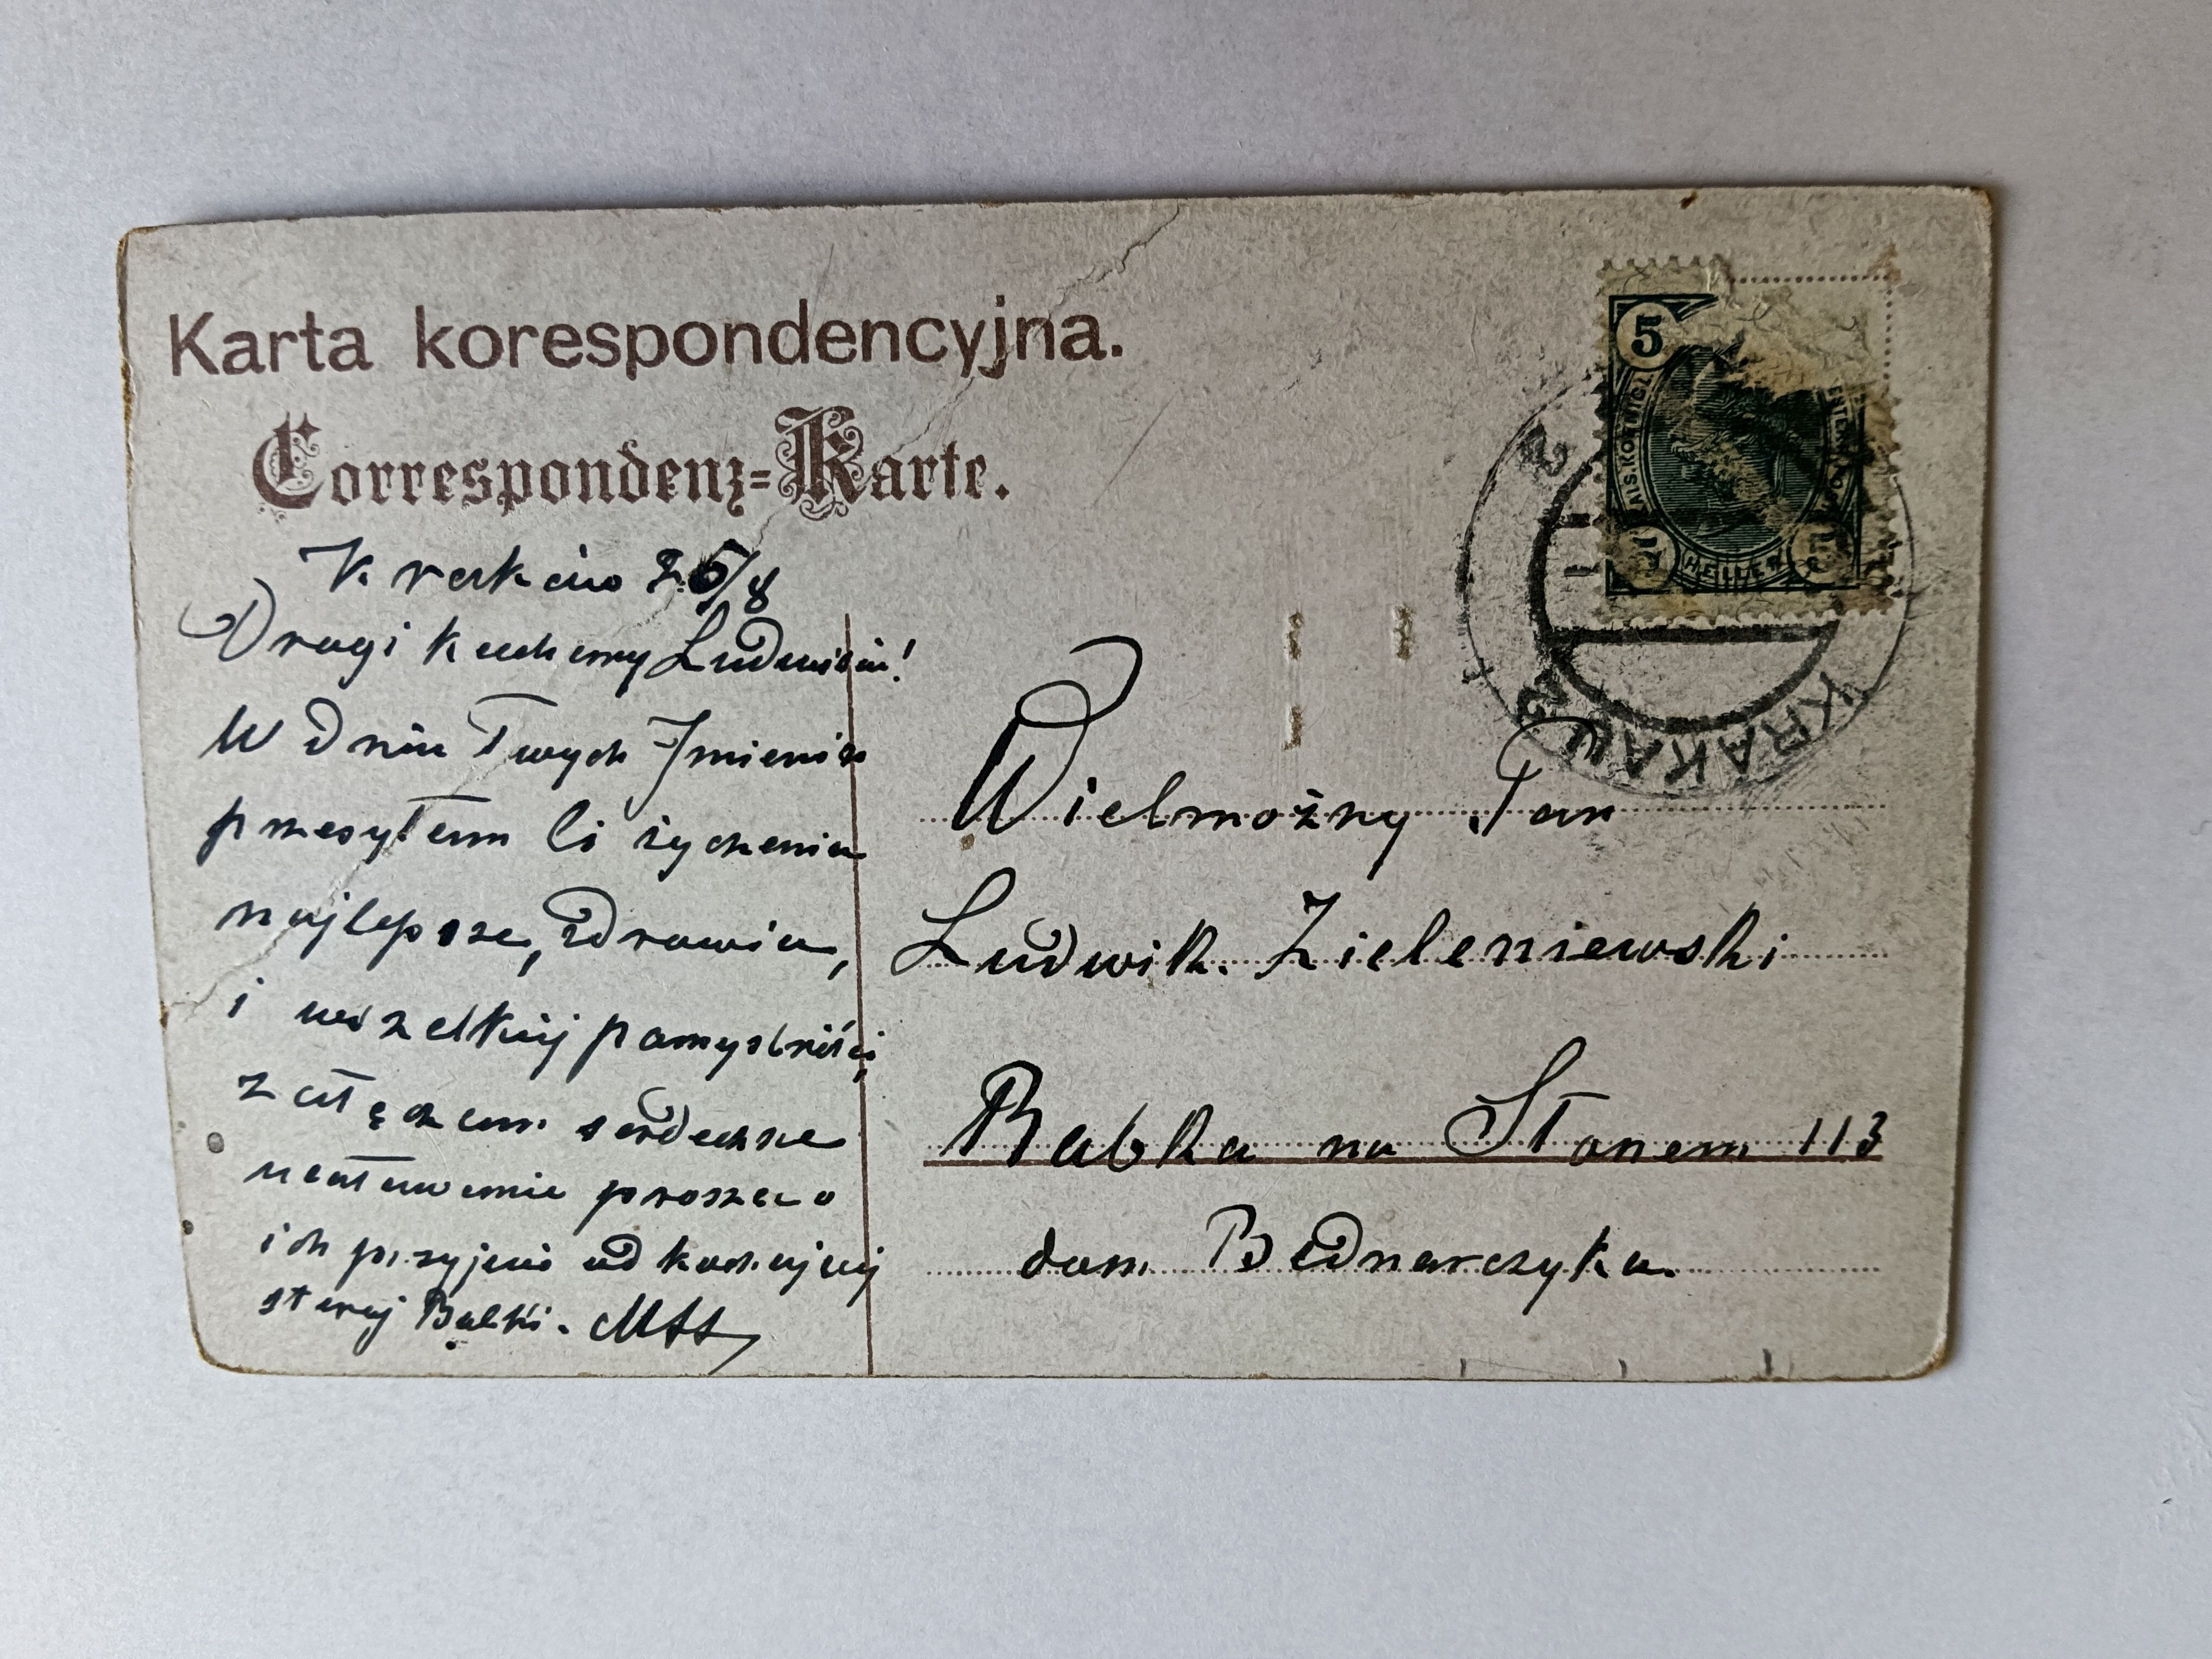 Karta korespondencyjna.
Correspondenz=Karte.
Kraków 25/8
Drogi kochany Ludwisiu!
W dniu Twych Imienin
przesyłam Ci życzenia
najlepsze, zdrowia,
i wszelkiej pomyślności,
załączam serdeczne
ucałowanie proszę o
ich przyjęcie od kochającej
starej Babki.
5
HELLER
KRAKAU
Wielmożny Pan
Ludwik Zieleniewski
Rabka na Słonem 113
dom Bednarczyka.